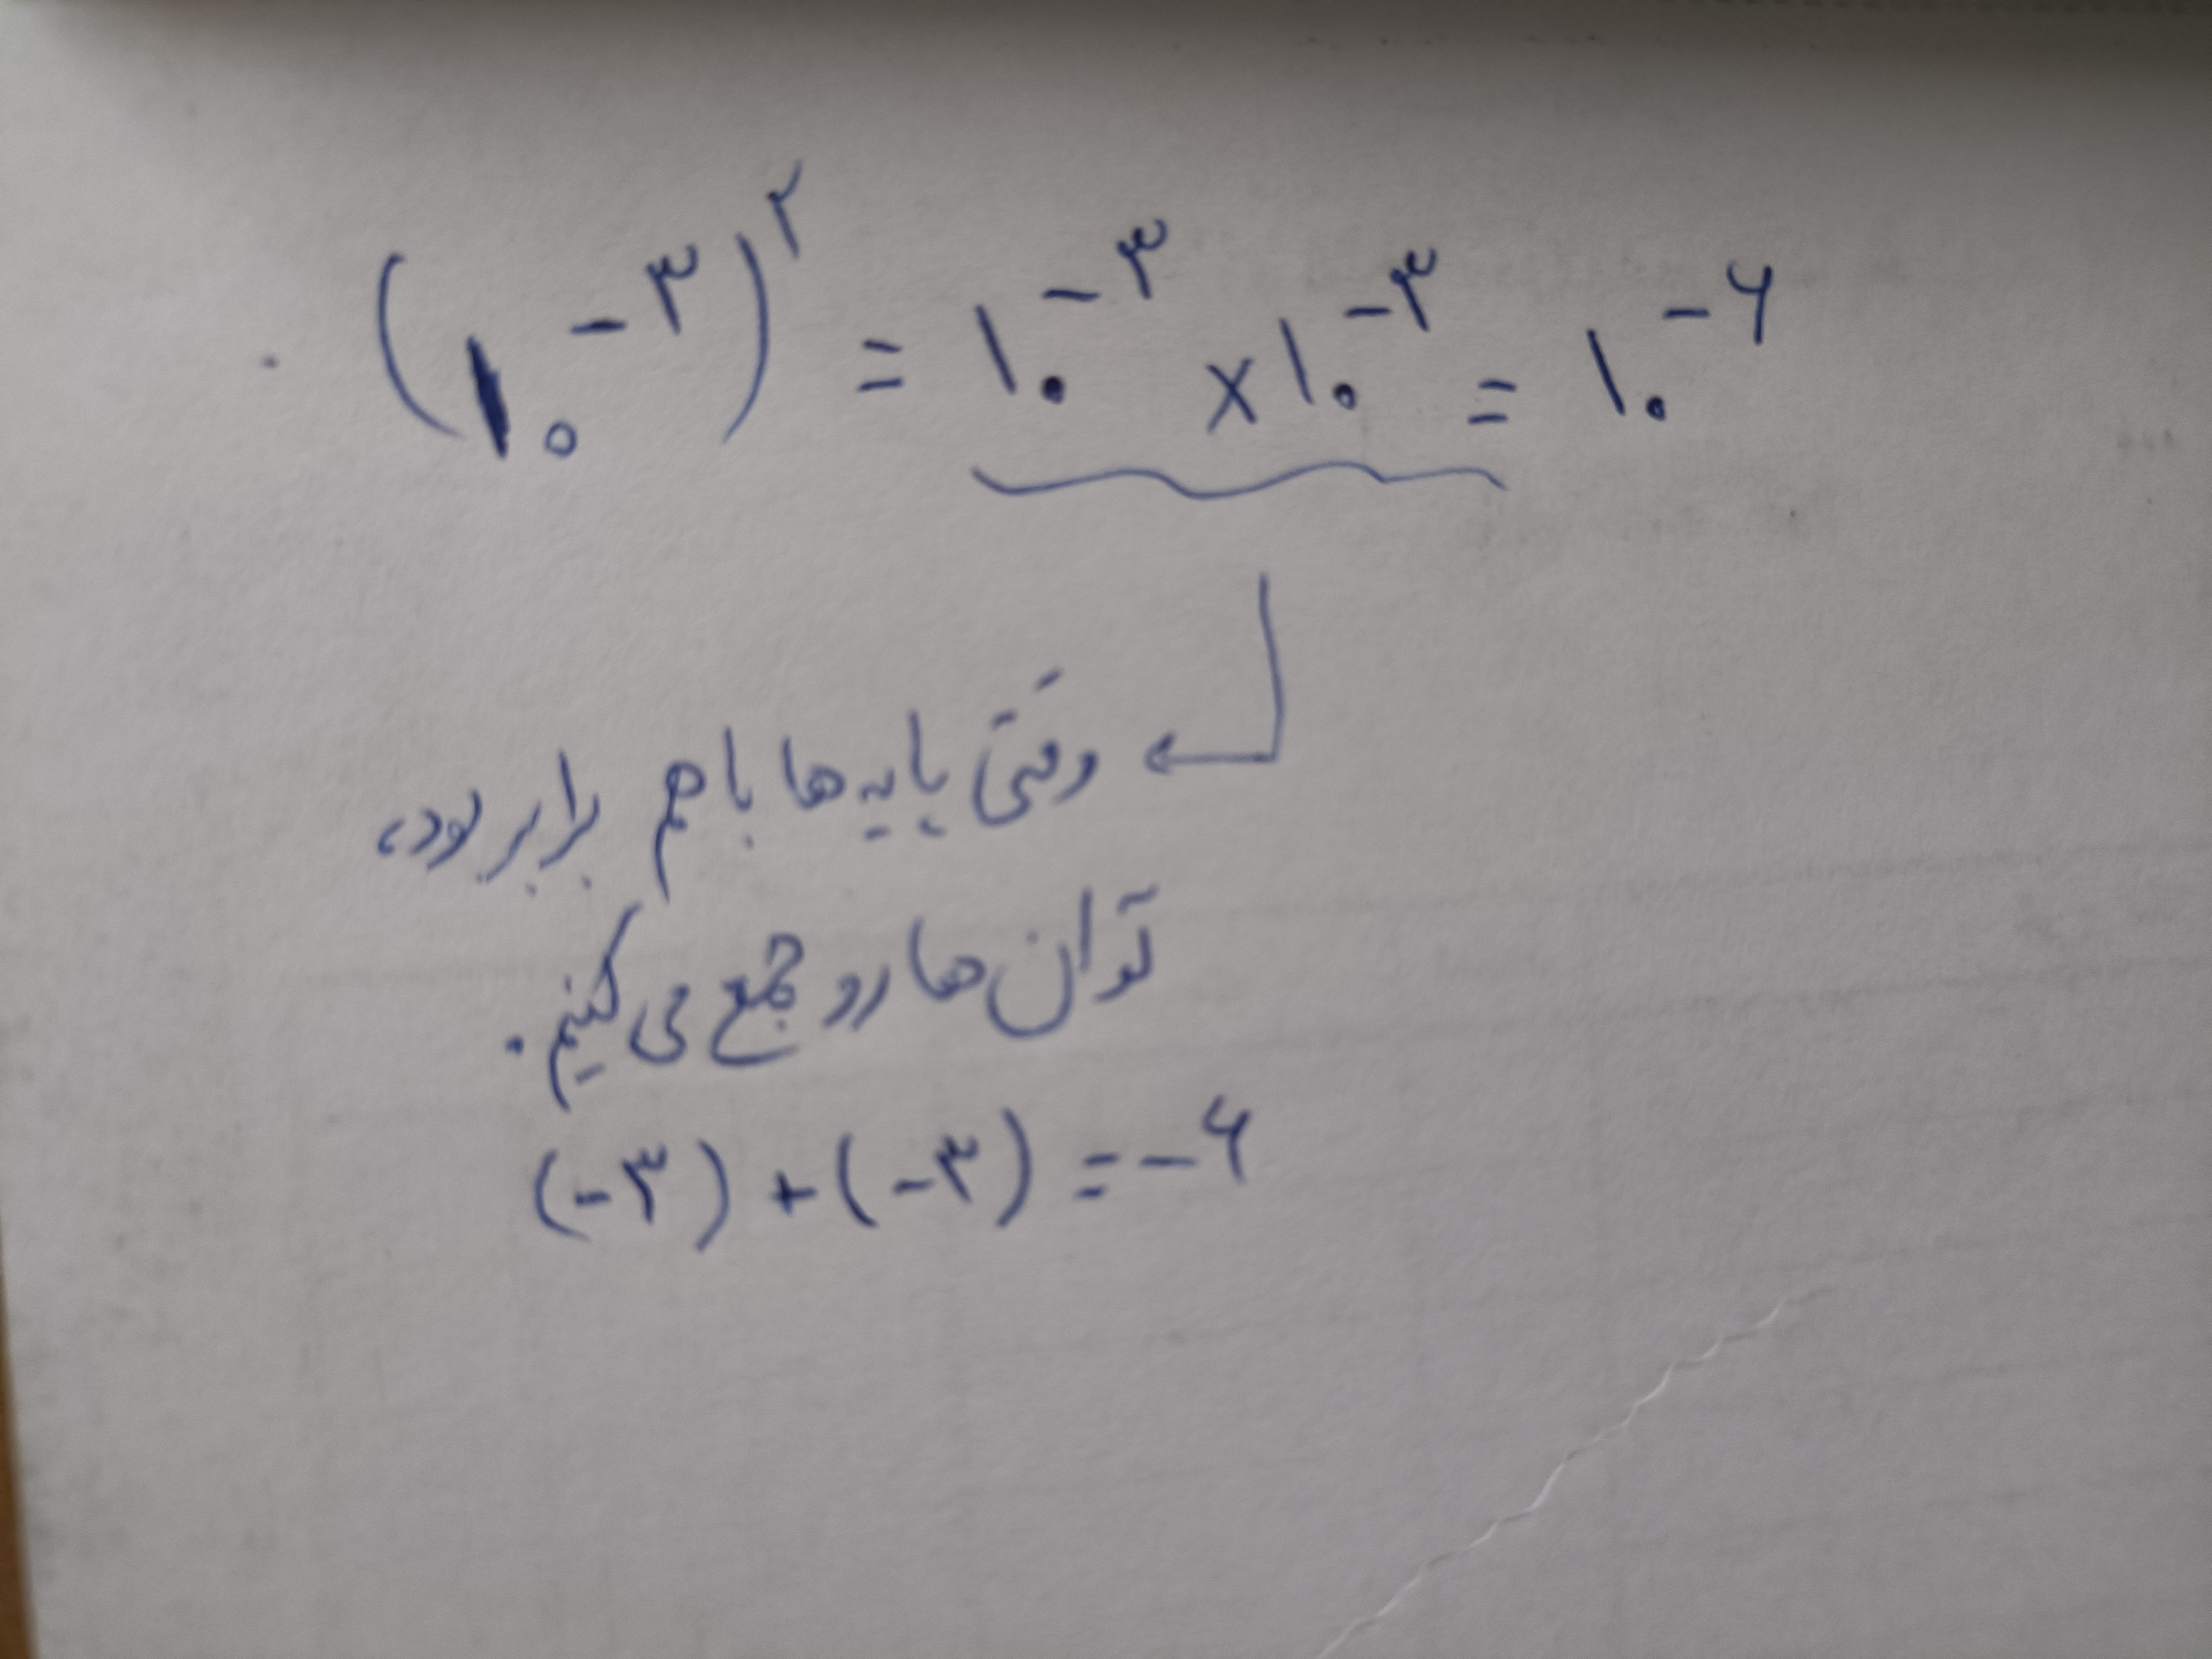 (۱۰^-۳)^۲ = ۱۰^-۳ × ۱۰^-۳ = ۱۰^-۶
وقتی پایه‌ها باهم برابر بود،
توان‌ها رو جمع می‌کنیم.
(-۳) + (-۳) = -۶